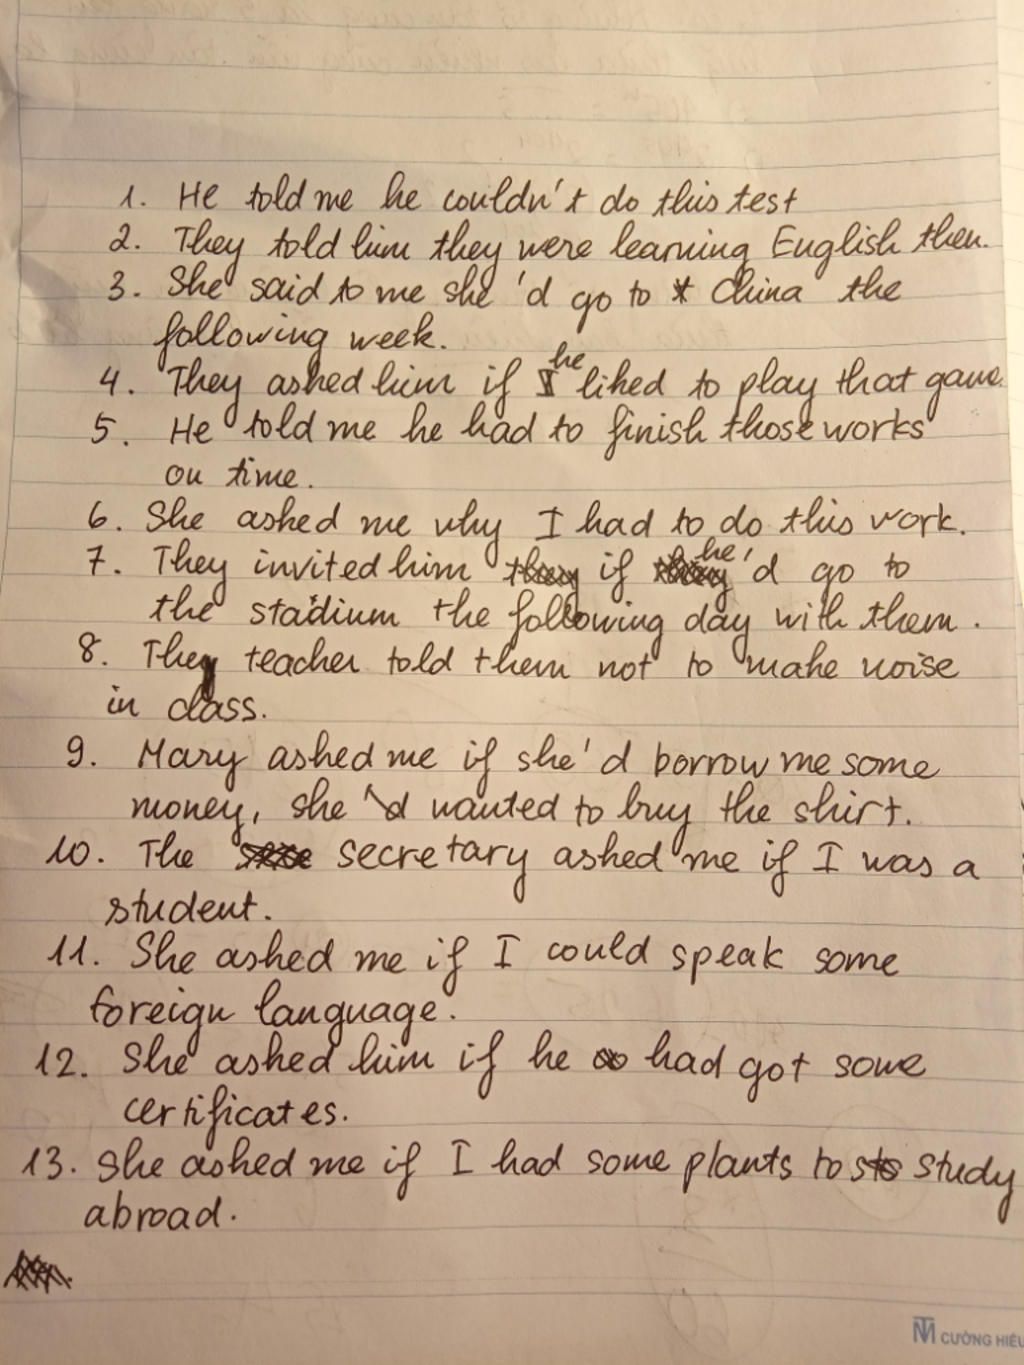 1. He told me he couldn't do this test
2. They told him they were learning English then.
3. She said to me she 'd go to China the
following week.
4. They asked him if he liked to play that game.
5. He told me he had to finish those works
on time.
6. She asked me why I had to do this work.
7. They invited him if he'd go to
the stadium the following day with them.
8. The teacher told them not to make noise
in class.
9. Mary asked me if she'd borrow me some
money, she wanted to buy the shirt.
10. The secretary asked me if I was a
student.
11. She asked me if I could speak some
foreign language.
12. She asked him if he had got some
certificates.
13. She asked me if I had some plants to study
abroad.
CƯỜNG HIẾU